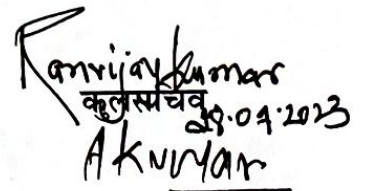 Ramvijay Kumar
कुलसचिव
28.04.2023
A Kumar